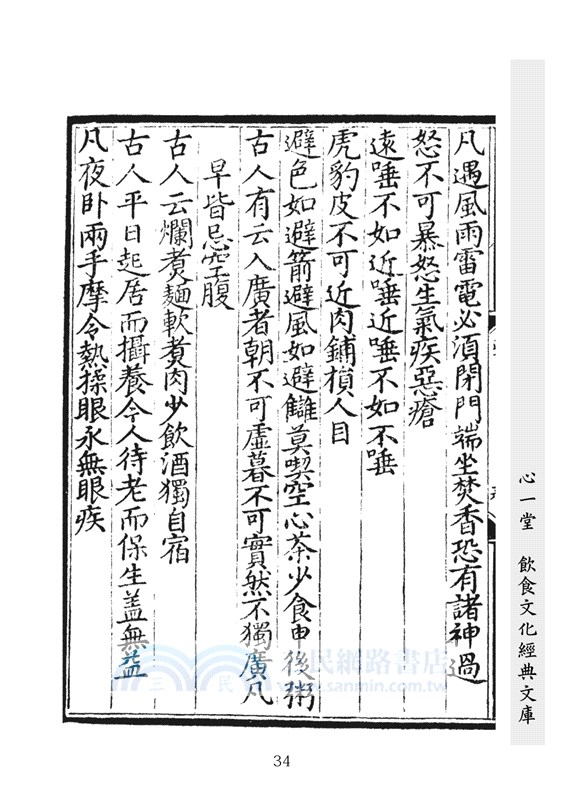 凡遇風雨雷電必湏閉門端坐焚香恐有諸神過
怒不可暴怒生氣疾惡瘡
遠唾不如近唾近唾不如不唾
虎豹皮不可近肉鋪損人目
避色如避箭避風如避讎莫喫空心茶少食申後粥
古人有云入廣者朝不可虛暮不可實然不獨廣凡
早皆忌空腹
古人云爛煑麵軟煑肉少飲酒獨自宿
古人平日起居而攝養今人待老而保生盖無益
凡夜卧兩手摩令熱揉眼永無眼疾
心一堂 飲食文化經典文庫
三民網路書店
www.sanmin.com.tw
34